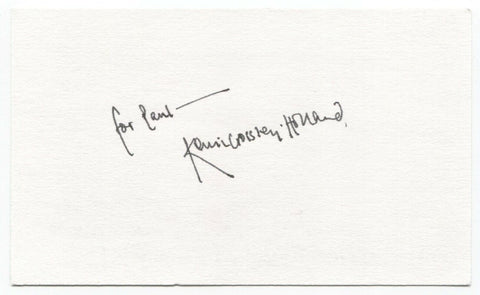 for Paul —
Kevin Crossley-Holland